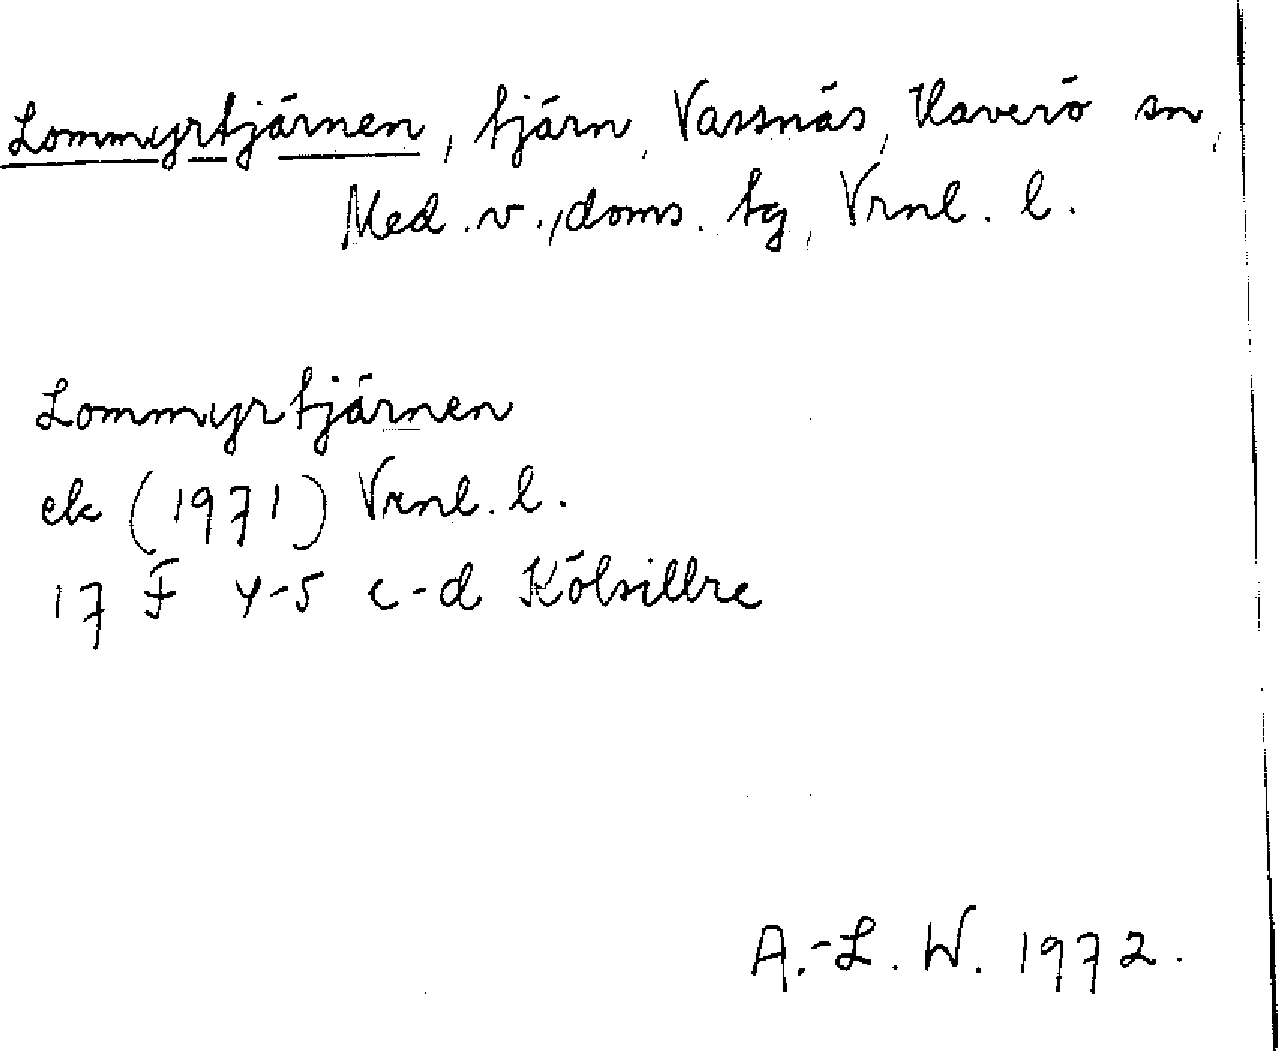 Lommyrtjärnen, tjärn, Vassnäs, Haverö sn,
Med. v., doms. tg, Vrnl. l.
Lommyrtjärnen
ek (1971) Vrnl. l.
17 F 4-5 c-d Kölsillre
A.-L. W. 1972.